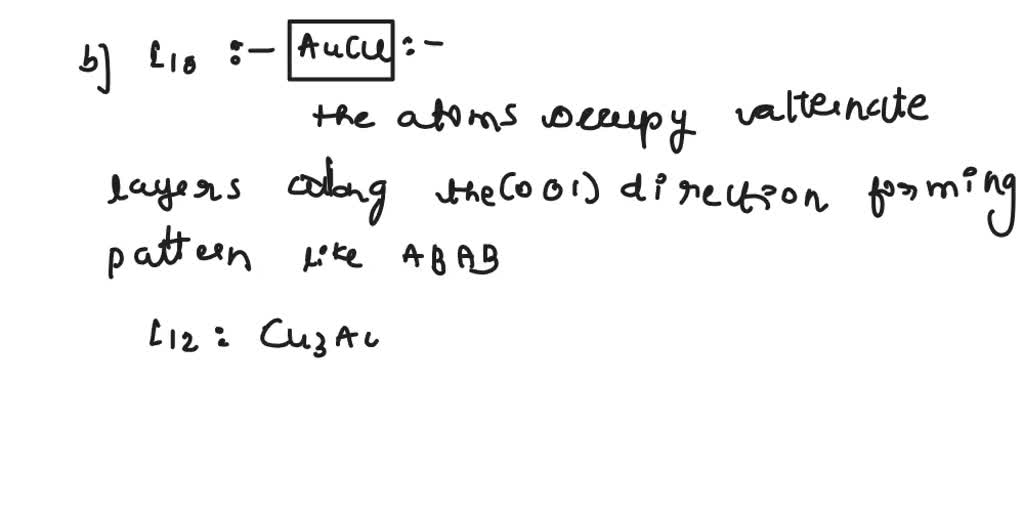 b] L10 :- AuCu :-
the atoms occupy alternate
layers along the (001) direction forming
pattern like ABAB
L12 : Cu3Au